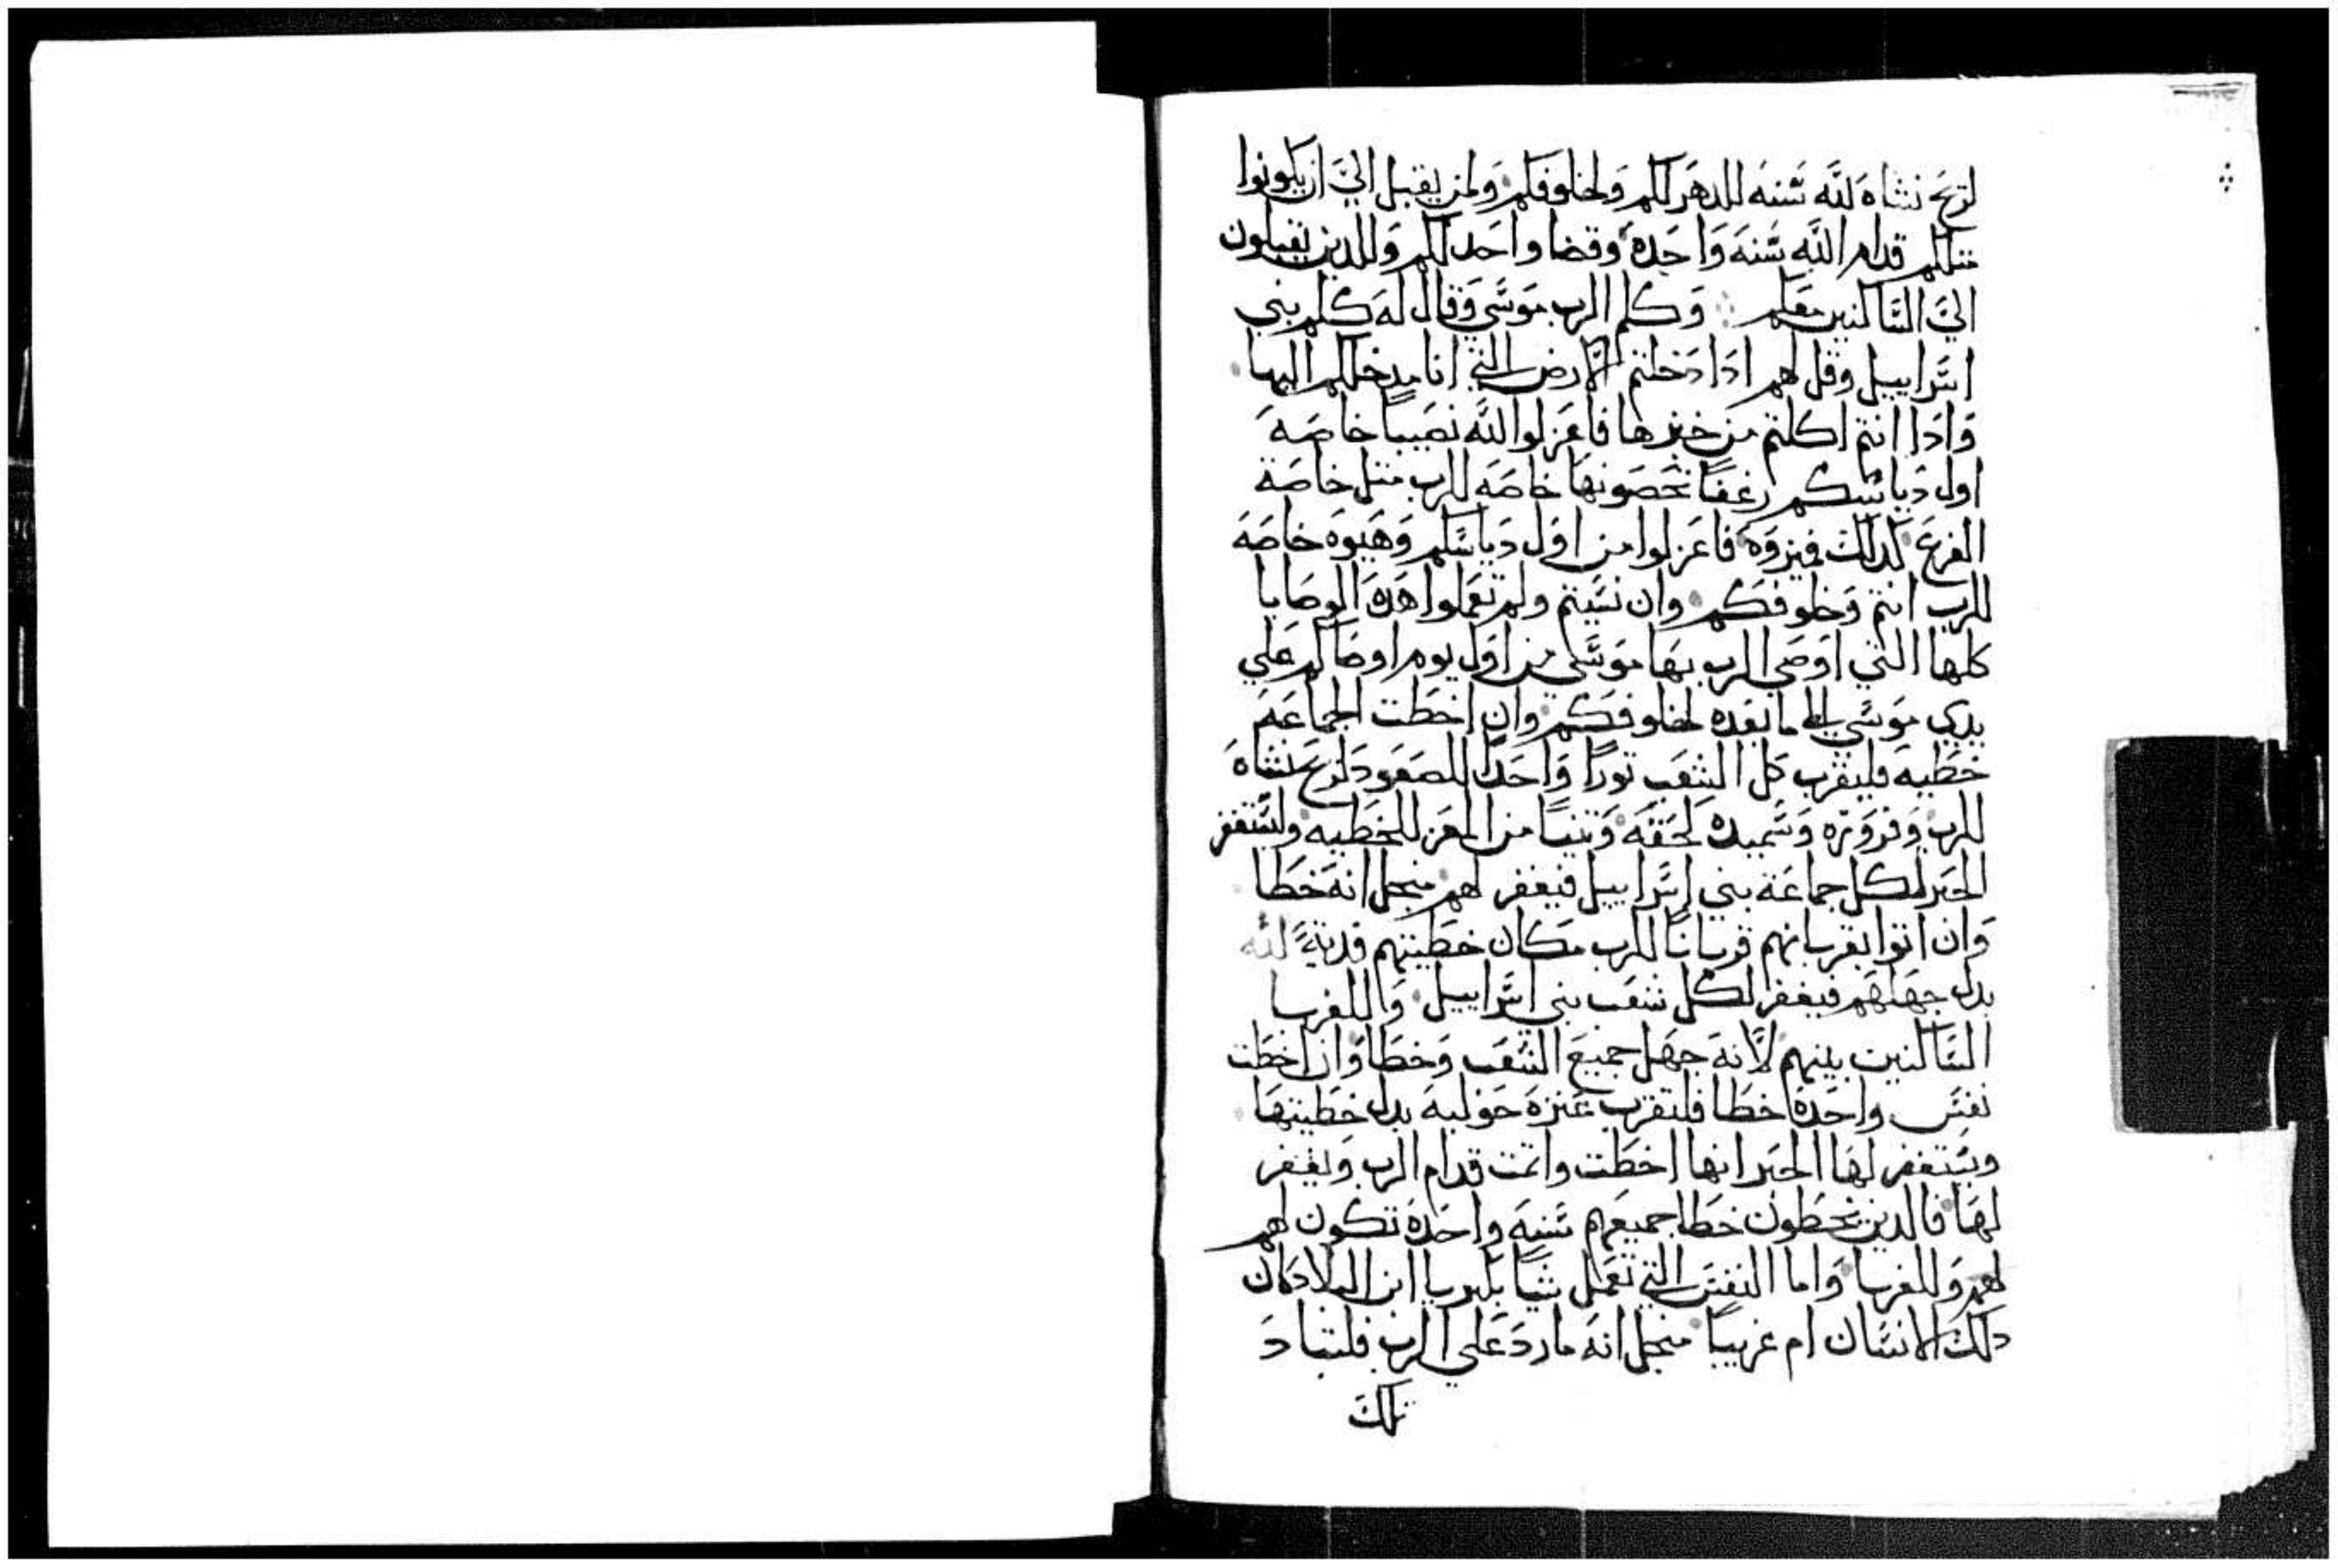 لريح نشاه لله سنه للدهر لكم ولخلوفكم ولمن يقبل الي ان يكونوا
متلكم قدام الله سنه واحده وقضا واحد لكم وللدين يقبلون
الي الساكنين معكم وكلم الرب موسي وقال له كلم بني
اسراييل وقل لهم ادا دخلتم الارض التي انا مدخلكم اليها
وادا انتم اكلتم من خبزها فاعزلوا لله نصيبا خاصه
اول دياسكم رغفا تخصونها خاصه للرب متل خاصة
الفرع كدلك فميزوه فاعزلوا من اول دياسكم وهبوه خاصه
للرب انتم وخلوفكم وان نسيتم ولم تعملوا هده الوصايا
كلها التي اوصي الرب بها موسي من اول يوم اوصاكم علي
يدي موسي الي ما بعده لخلوفكم وان اخطت الجماعه
خطيه فليقرب كل الشعب تورا واحدا للصعود لريح نشاه
للرب وقرورة وسميده لحقه وتنيا من المعز للخطيه وليستغفر
الحبر لكل جماعة بني اسراييل فيغفر لهم منجل انه خطا
وان اتوا بقربانهم قربانا للرب مكان خطيتهم قدية لله
بدل جهلهم فيغفر لكل شعب بني اسراييل وللغربا
الساكنين بينهم لانه جهل جميع الشعب وخطا وان اخطت
نفس واحدة خطا فلتقرب عنزه حوليه بدل خطيتها
ويستغفر لها الحبر انها اخطت واتمت قدام الرب ويغفر
لها فالدين يخطون خطا جميعهم سنه واحدة تكون لهم
لهم وللغربا واما النفس التي تعمل شيا بكبريا ابن البلاد كان
دلك الانسان ام غريبا منجل انه مارد علي الرب فلتباد
تلك